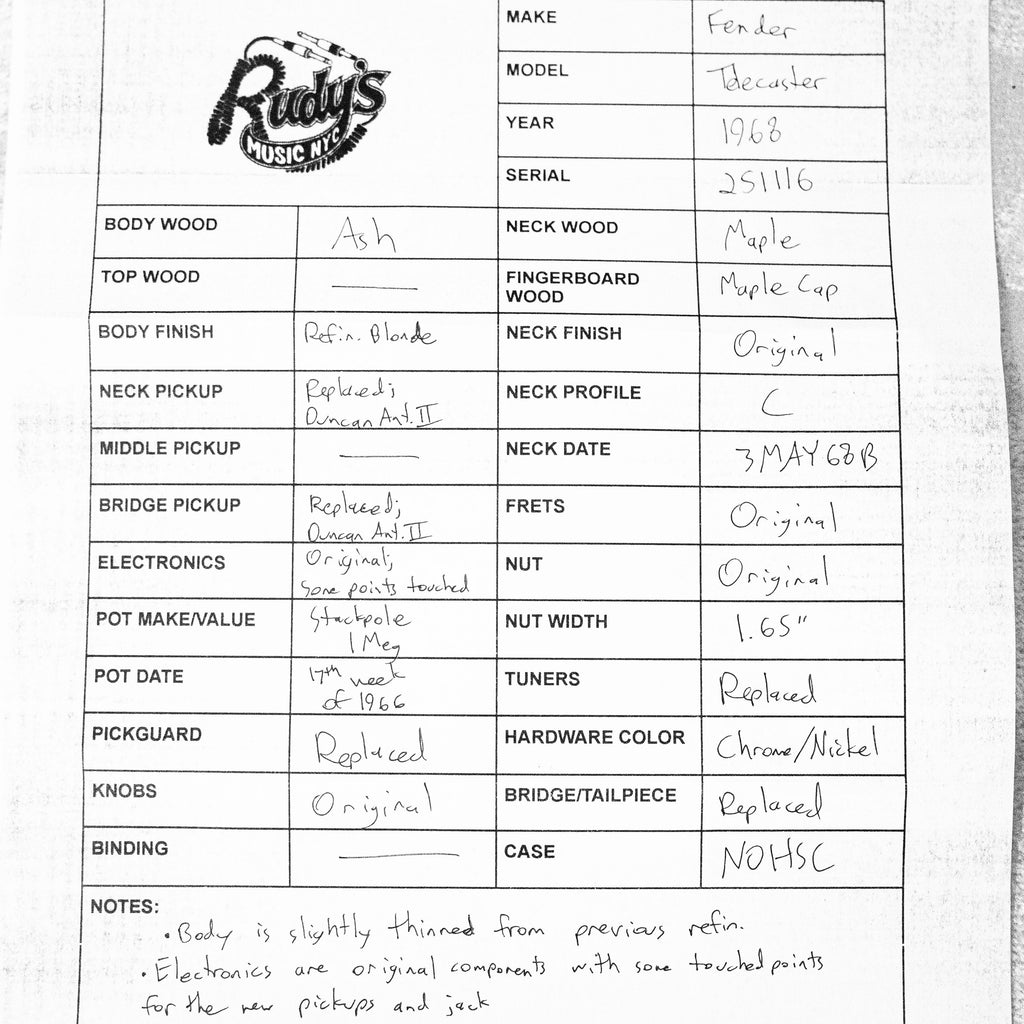 Rudy's
MUSIC NYC
MAKE Fender
MODEL Telecaster
YEAR 1968
SERIAL 251116
BODY WOOD Ash NECK WOOD Maple
TOP WOOD FINGERBOARD WOOD Maple Cap
BODY FINISH Refin. Blonde NECK FINISH Original
NECK PICKUP Replaced; Duncan Ant. II NECK PROFILE C
MIDDLE PICKUP NECK DATE 3 MAY 68 B
BRIDGE PICKUP Replaced; Duncan Ant. II FRETS Original
ELECTRONICS Original; some points touched NUT Original
POT MAKE/VALUE Stackpole 1 Meg NUT WIDTH 1.65"
POT DATE 17th week of 1966 TUNERS Replaced
PICKGUARD Replaced HARDWARE COLOR Chrome/Nickel
KNOBS Original BRIDGE/TAILPIECE Replaced
BINDING CASE NOHSC
NOTES:
• Body is slightly thinned from previous refin.
• Electronics are original components with some touched points
for the new pickups and jack